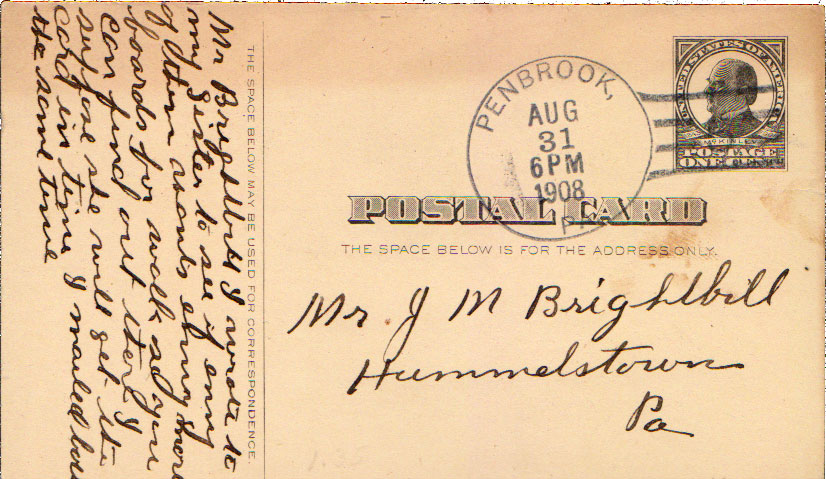 Mr Brightbill I wrote to
my Sister to see if eny
of them wants eny more
boards for walk so you
can find out there I
supose she will get the
card in time I mailed bou
the same time
THE SPACE BELOW MAY BE USED FOR CORRESPONDENCE.
PENBROOK,
AUG
31
6PM
1908
PA
UNITED STATES OF AMERICA
McKINLEY
POSTAGE
ONE CENT
POSTAL CARD
THE SPACE BELOW IS FOR THE ADDRESS ONLY.
Mr J M Brightbill
Hummelstown
Pa
1.35